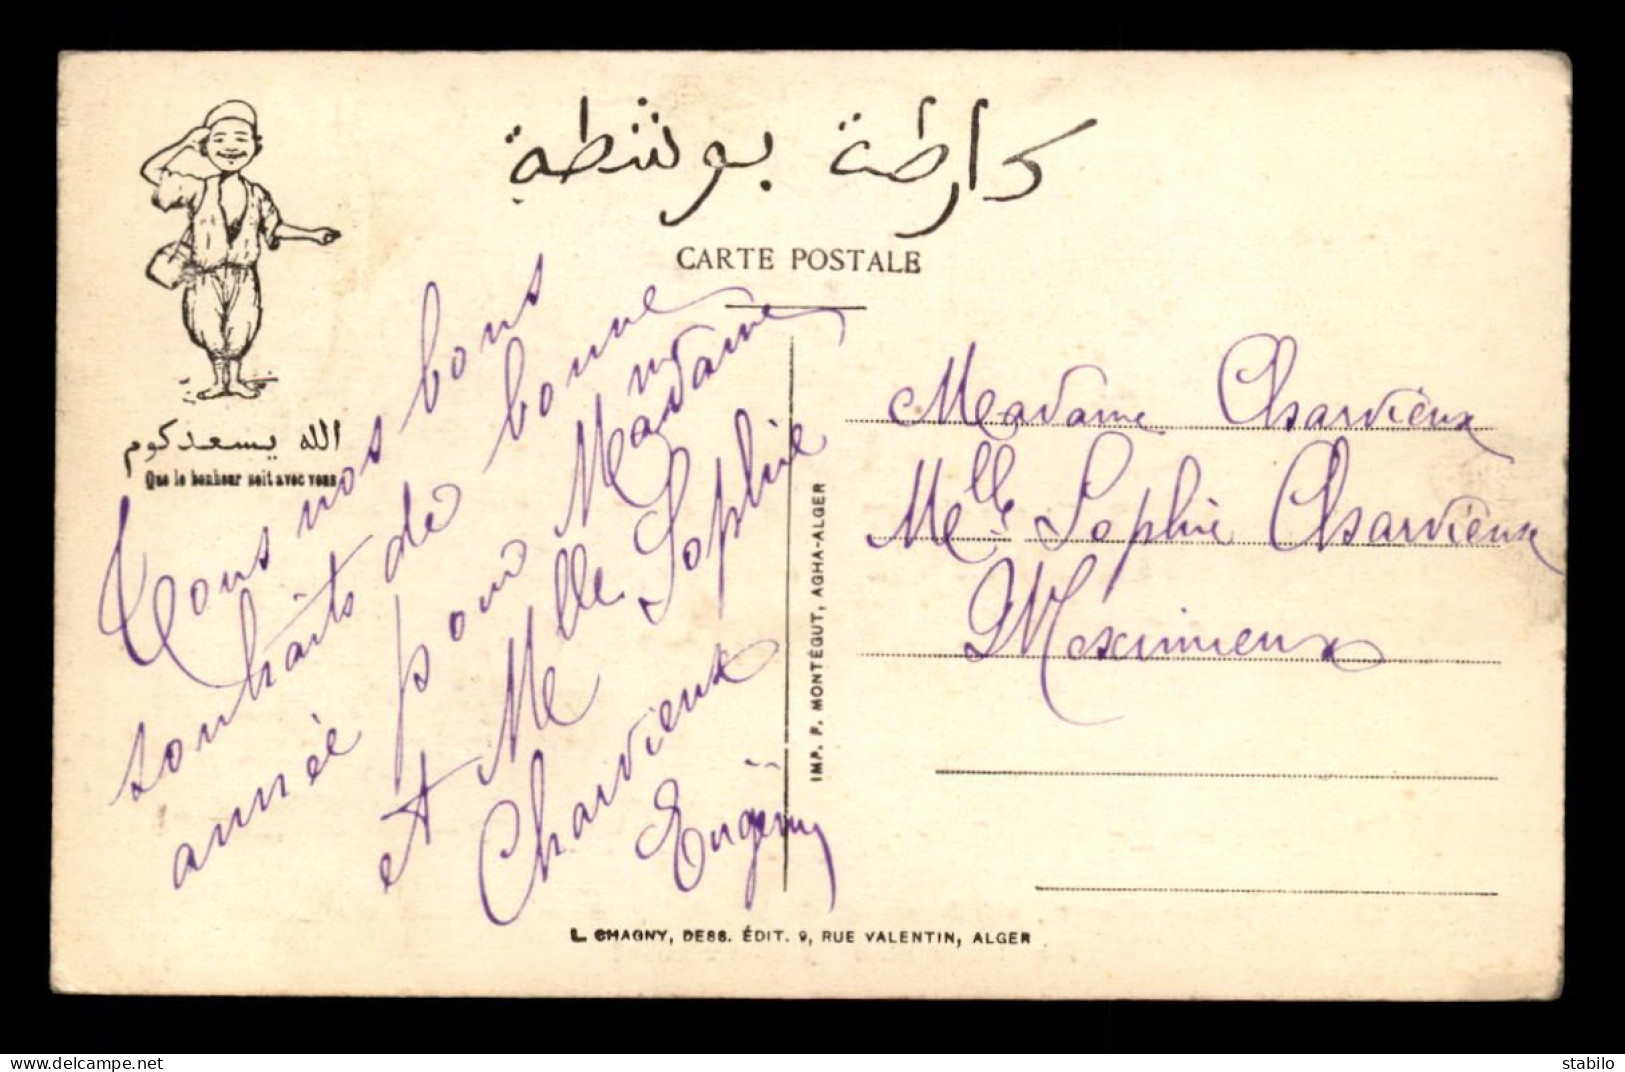 كارطة بوشطة
CARTE POSTALE
الله يسعدكوم
Que le bonheur soit avec vous
Tous nos bons
souhaits de bonne
année pour Madame
et Melle Sophie
Charvieux
Madame Charvieux
Melle Sophie Charvieux
Meximieux
IMP. P. MONTÉGUT, AGHA-ALGER
L. CHAGNY, DESS. ÉDIT. 9, RUE VALENTIN, ALGER
delcampe.net
stabilo